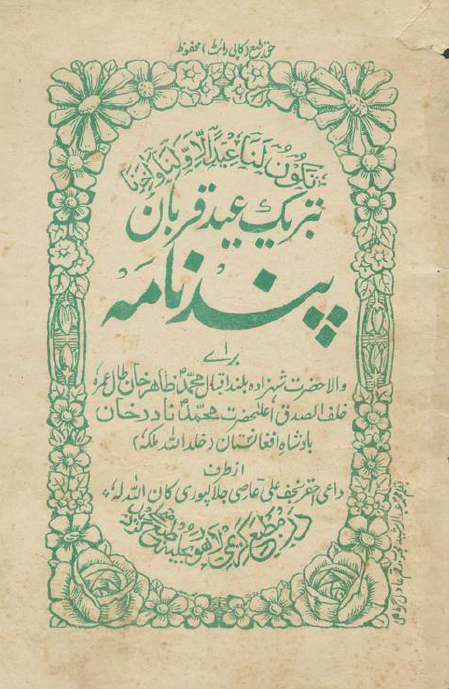 حق طبع (کاپی رائٹ) محفوظ
تَکُونُ لَنَا عِیْدًا لِّاَوَّلِنَا وَآخِرِنَا
تبریک عید قربان
پندنامہ
برائے
والاحضرت شہزادہ بلند اقبال محمد ظاهر خان طال عمرہ
خلف الصدق اعلیٰحضرت محمد نادر خان
بادشاہ افغانستان (خلد اللہ ملکہ)
از طرف
داعی احقر نجف علی عاصی جلالپوری کان اللہ لہ
در مطبع کریمی لاهور